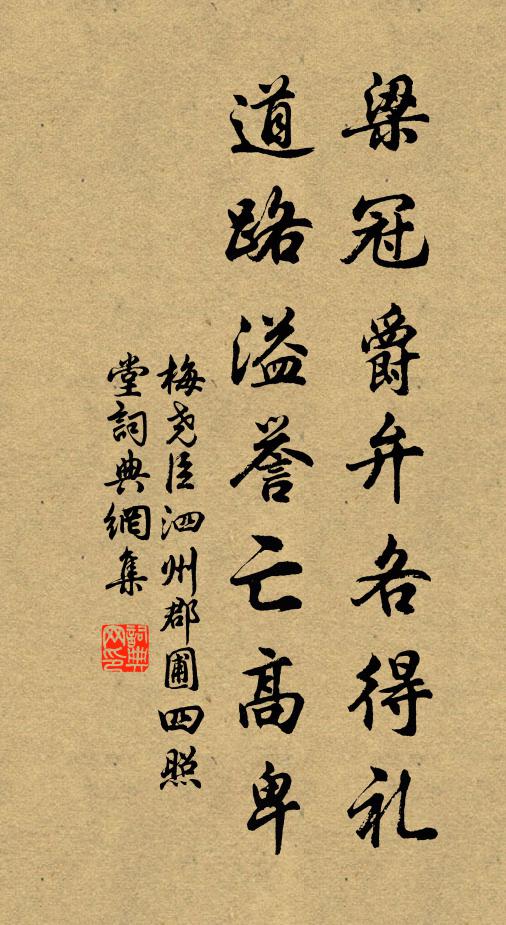 梁冠爵弁各得礼
道路溢誉亡高卑
梅尧臣泗州郡圃四照
堂詞典網集
詞典网印